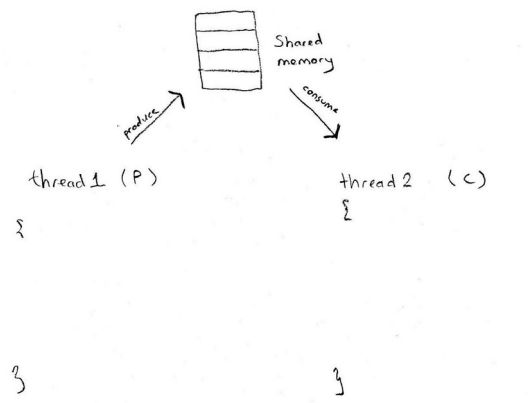 Shared
memory
produce
consume
thread 1 (P)
thread 2 (C)
{
{
}
}